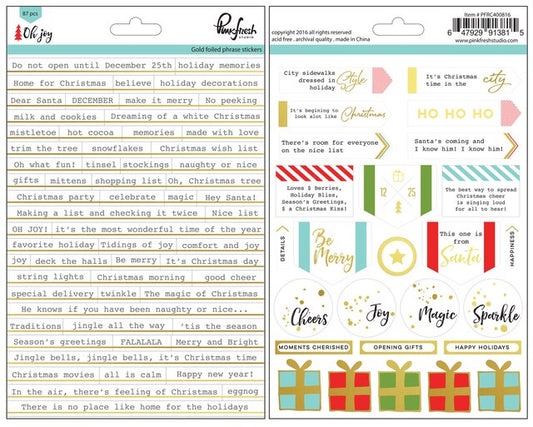 87 pcs
Oh joy
Pinkfresh
STUDIO
Gold foiled phrase stickers
Do not open until December 25th holiday memories
Home for Christmas believe holiday decorations
Dear Santa DECEMBER make it merry No peeking
milk and cookies Dreaming of a white Christmas
mistletoe hot cocoa memories made with love
trim the tree snowflakes Christmas wish list
Oh what fun! tinsel stockings naughty or nice
gifts mittens shopping list Oh, Christmas tree
Christmas party celebrate magic Hey Santa!
Making a list and checking it twice Nice list
OH JOY! it's the most wonderful time of the year
favorite holiday Tidings of joy comfort and joy
joy deck the halls Be merry It's Christmas day
string lights Christmas morning good cheer
special delivery twinkle The magic of Christmas
He knows if you have been naughty or nice...
Traditions jingle all the way 'tis the season
Season's greetings FALALALA Merry and Bright
Jingle bells, jingle bells, it's Christmas time
Christmas movies all is calm Happy new year!
In the air, there's feeling of Christmas eggnog
There is no place like home for the holidays
copyright 2016 all rights reserved
acid free . archival quality . made in China
www.pinkfreshstudio.com
Item # PFRC400816
6 47929 91381 5
City sidewalks
dressed in
holiday
Style
It's Christmas
time in the
city
It's begining to
look alot like
Christmas
HO HO HO
There's room for everyone
on the nice list
Santa's coming and
I know him! I know him!
Loves & Berries,
Holiday Bliss,
Season's Greetings,
& a Christmas Kiss!
12 25
The best way to spread
Christmas cheer
is singing loud
for all to hear!
DETAILS
Be
Merry
This one is
from
Santa
HAPPINESS
Cheers
Joy
Magic
Sparkle
MOMENTS CHERISHED
OPENING GIFTS
HAPPY HOLIDAYS